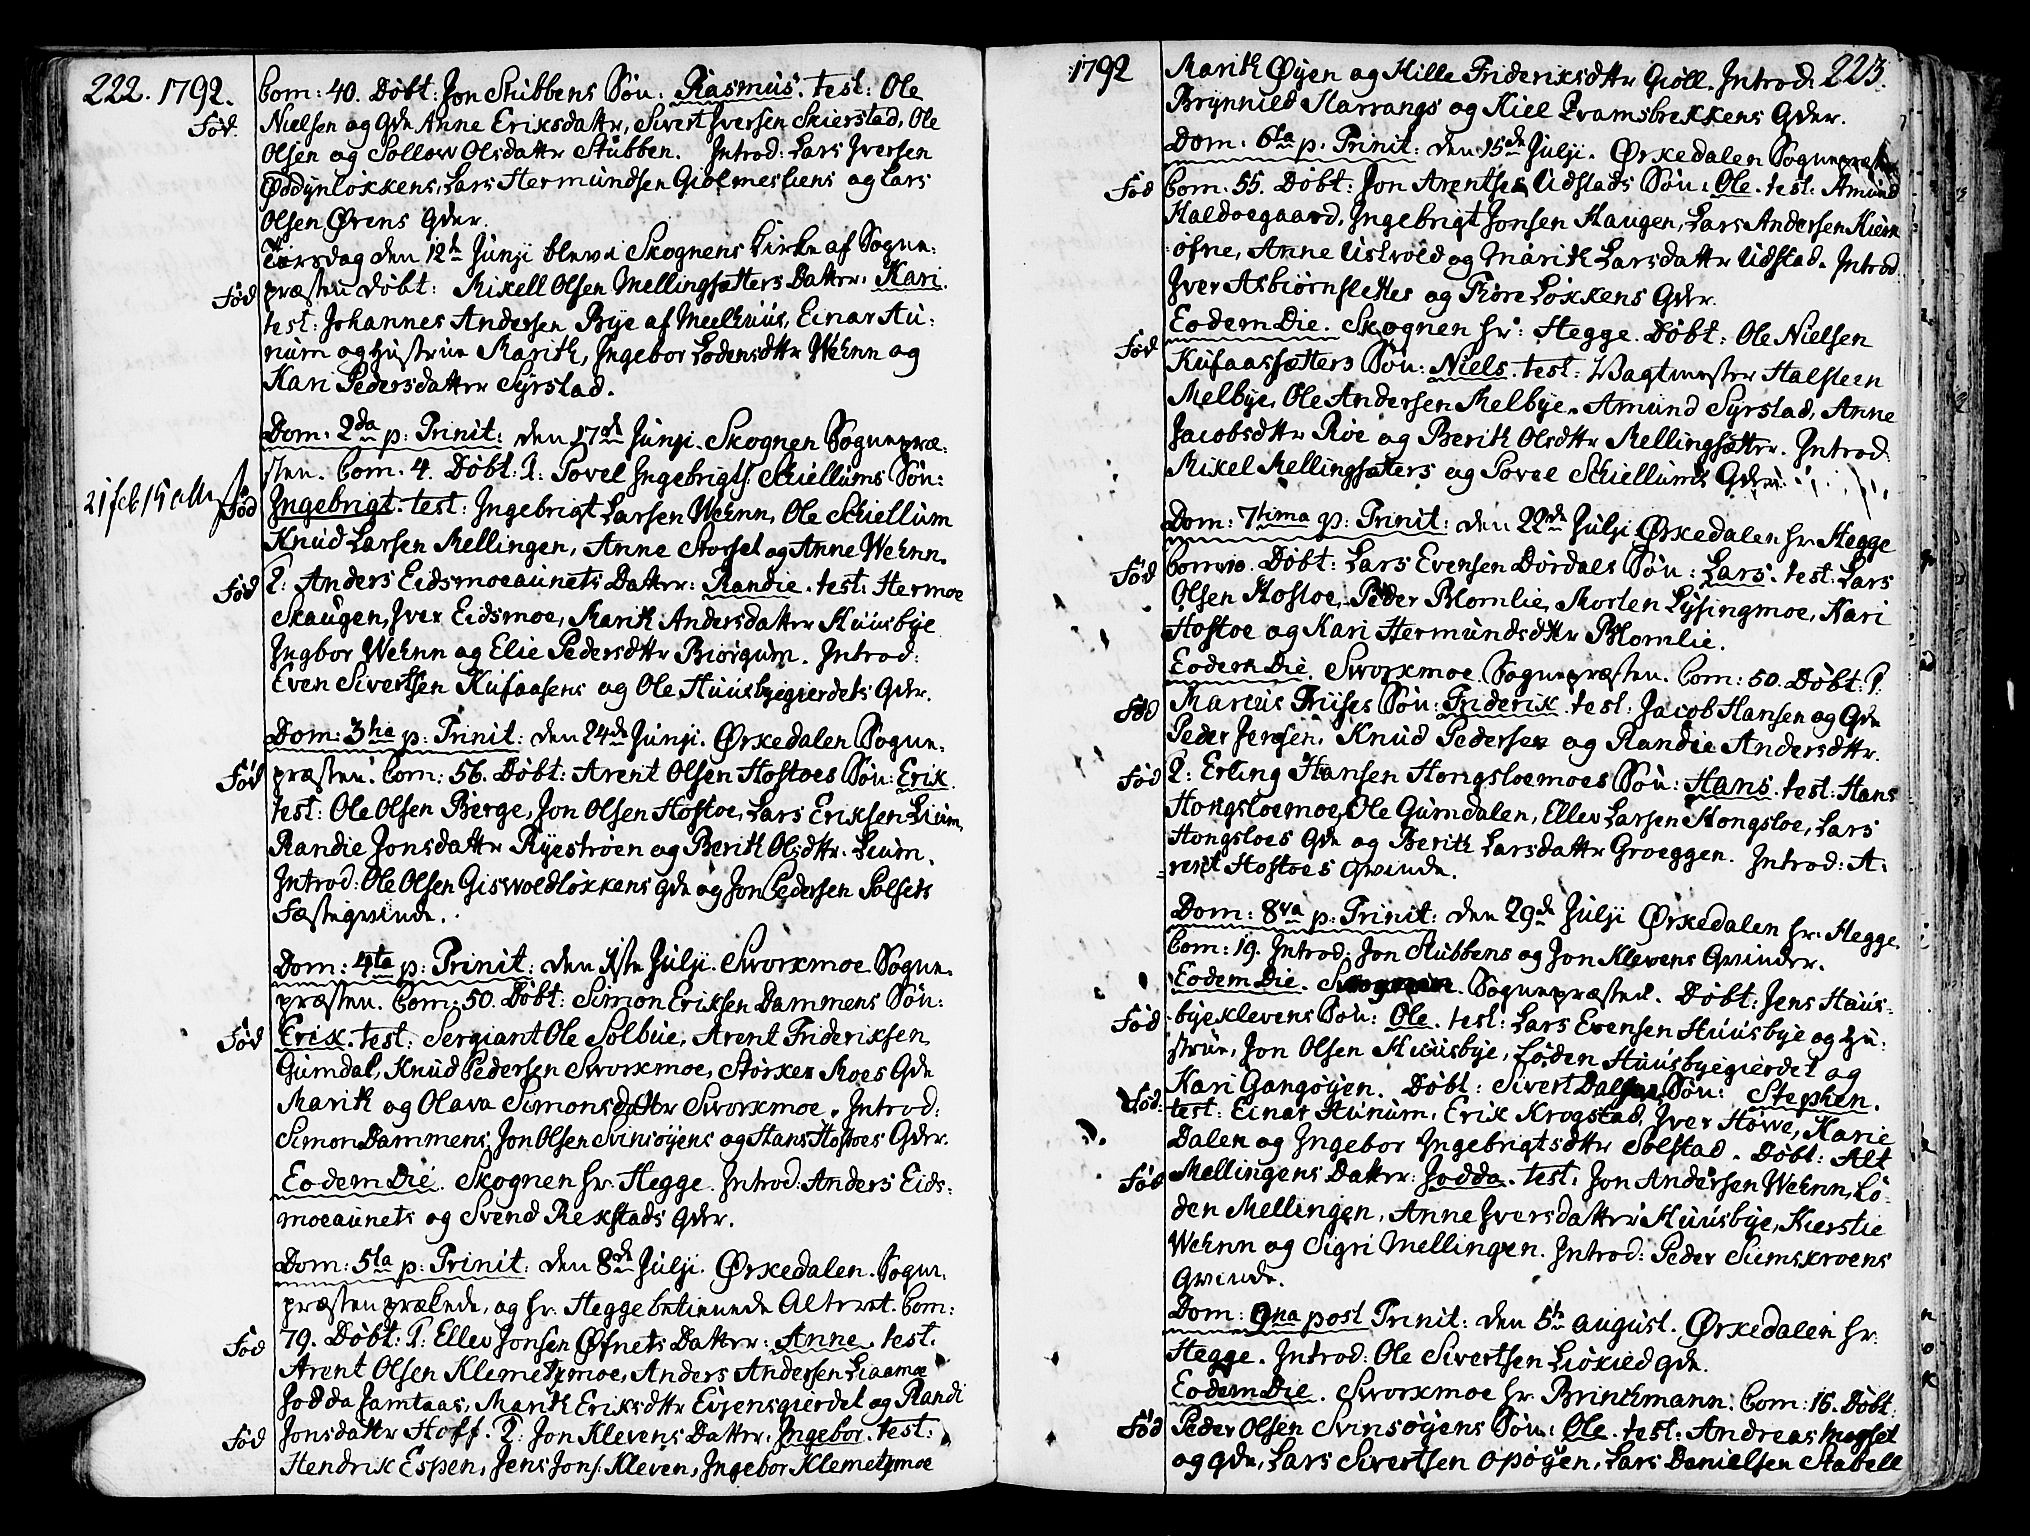 222. 1792.
Com: 40. Døbt: Jon Stubbens Søn: Rasmus. test: Ole
Fød.
Nielsen og Gde Anne Eriksdattr, Sivert Iversen Skierstad, Ole
Olsen og Sollow Olsdattr Stubben. Introd: Lars Iversen
Oddynløkkens, Lars Hermundsen Giølmesliens og Lars
Olsen Ørens Qder.
Tirsdag den 12te Junji blev i Skognens Kirke af Sogne-
præsten døbt: Mikell Olsen Mellingsætters Datter: Kari.
Fød
test: Johannes Andersen Bye af Meelhuus, Einar Au-
num og hustrue Marith, Ingebor Lodensdttr Wehnn og
Kari Pedersdatter Syrstad.
Dom: 2da p: Trinit: den 17de Junji. Skognen Sognepræ-
sten. Com: 4. Døbt: 1: Povel Ingebrigts: Schiellums Søn:
Fød
Ingebrigt. test: Ingebrigt Larsen Wehnn, Ole Schiellum
Knud Larsen Mellingen, Anne Storset og Anne Wehnn.
Fød
2: Anders Eidsmoeaunets Datter: Randie. test: Hermoe
Skaugen, Iver Eidsmoe, Marith Andersdatter Huusbye
Ingbor Wehnn og Elie Pedersdttr Biørgum. Introd:
Even Sivertsen Kufaasens og Ole Huusbyegierdets Qder.
Dom: 3tia p: Trinit: den 24de Junji. Ørkedalen Sogne-
Fød
præsten. Com: 56. Døbt: Arent Olsen Hostoes Søn: Erik.
test: Ole Olsen Berge, Jon Olsen Hostoe, Lars Eriksen Lium,
Randie Jonsdatter Ryestrøen og Berith Olsdttr. Lium.
Introd: Ole Olsen Giswoldløkkens Qde og Jon Pedersen Solsets
Fæsteqvinde.
Dom: 4ta p: Trinit: den 1ste Julji. Sworkmoe Sogne-
præsten. Com: 50. Døbt: Simon Eriksen Dammens Søn:
Fød
Erik. test: Sergiant Ole Solbue, Arent Frideriksen
Gumdal, Knud Pedersen Sworkmoe, Størker Moes Qde
Marith og Olava Simonsdattr Sworkmoe. Introd:
Simon Dammens, Jon Olsen Svinsøyens og Hans Hostoes Qder.
Eodem Die. Skognen hr: Hegge. Introd: Anders Eids-
moeaunets og Svend Rekstads Qder.
Dom: 5ta p: Trinit: den 8de Julji. Ørkedalen. Sogne-
præsten prækede, og hr: Hegge betienede Alteret. Com:
Fød
79. Døbt: 1: Ellev Jonsen Øfnets Datter: Anne. test.
Arent Olsen Klemetzmoe, Anders Andersen Liaamoe
Jodda Jamtaas, Marith Eriksdttr Evjensgierdet og Randi
Fød
Jonsdattr Hoff. 2: Jon Klevens Datter: Ingebor. test:
Hendrik Espen, Jens Jons: Kleven, Ingebor Klemetzmoe
1792
223.
Marith Øyen og Hille Frideriksdttr Giøll. Introd:
Brynnild Harrangs og Kiel Pramsbrekkens Qder.
Dom: 6ta p: Trinit: den 15de Julji. Ørkedalen Sognepræsten
Fød
Com. 55. Døbt: Jon Arentsen Udstads Søn: Ole. test: Amund
Haldoegaard, Ingebrigt Jonsen Haugen, Lars Andersen Kiern
øfne, Anne Ustvold og Marith Larsdattr Udstad. Introd:
Iver Asbiørnslettes og Tøre Løkkens Qder.
Eodem Die. Skognen hr: Hegge. Døbt: Ole Nielsen
Fød
Kufaassætters Søn: Niels. test: Wagtmester Halsteen
Melbye, Ole Andersen Melbye. Amund Syrstad, Anne
Jacobsdttr Roe og Berith Olsdttr Mellingsætter. Introd:
Mikel Mellingsæters og Povel Schiellums Qder.
Dom: 7tima p: Trinit: den 22de Julji Ørkedalen hr: Hegge
Fød
Com: 10. Døbt: Lars Evensen Dørdals Søn: Lars. test: Lars
Olsen Hostoe, Peder Blomlie, Morten Lysingmoe, Kari
Hostoe og Kari Hermundsdttr Blomlie.
Eodem Die. Sworkmoe Sognepræsten. Com: 50. Døbt: 1:
Fød
Marcus Friises Søn: Friderik. test: Jacob Hansen og Qde
Peder Jensen, Knud Pedersen og Randie Andersdttr.
Fød
2: Erling Hansen Hongsloemoes Søn: Hans. test: Hans
Hongsloemoe, Ole Gumdalen, Ellev Larsen Hongsloe, Lars
Hongsloes Qde og Berith Larsdattr Groeggen. Introd: A-
rent Hostoes Qvinde.
Dom: 8va p: Trinit: den 29de Julji Ørkedalen hr: Hegge.
Com: 19. Introd: Jon Stubbens og Jon Klevens Qvinder.
Eodem Die. Skognen. Sognepræsten. Døbt: Jens Huus-
Fød
byeklevens Søn: Ole. test: Lars Evensen Huusbye og hu-
strue, Jon Olsen Huusbye, Løden Huusbyegierdet og
Kari Gangøyen. Døbt: Sivert Dalsens Søn: Stephen.
Fød:
test: Einar Hunum, Erik Krogstad, Iver Howe, Karie
Dalen og Ingebor Ingebrigtsdttr Solstad. Døbt: Alt
Fød
Mellingens Datter: Jodda. test: Jon Andersen Wehnn, Lø-
den Mellingen, Anne Iversdatter Huusbye, Kierstie
Wehnn og Sigri Mellingen. Introd: Peder Sumskroens
Qvinde.
Dom: 9na post Trinit: den 5te august. Ørkedalen hr:
Hegge. Introd: Ole Sivertsen Liøkied Qde.
Eodem Die. Sworkmoe hr: Brinchmann. Com: 16. Døbt:
Fød
Peder Olsen Svinsøyens Søn: Ole. test: Andreas Megset
og Qde, Lars Sivertsen Opøyen, Lars Danielsen Stabell